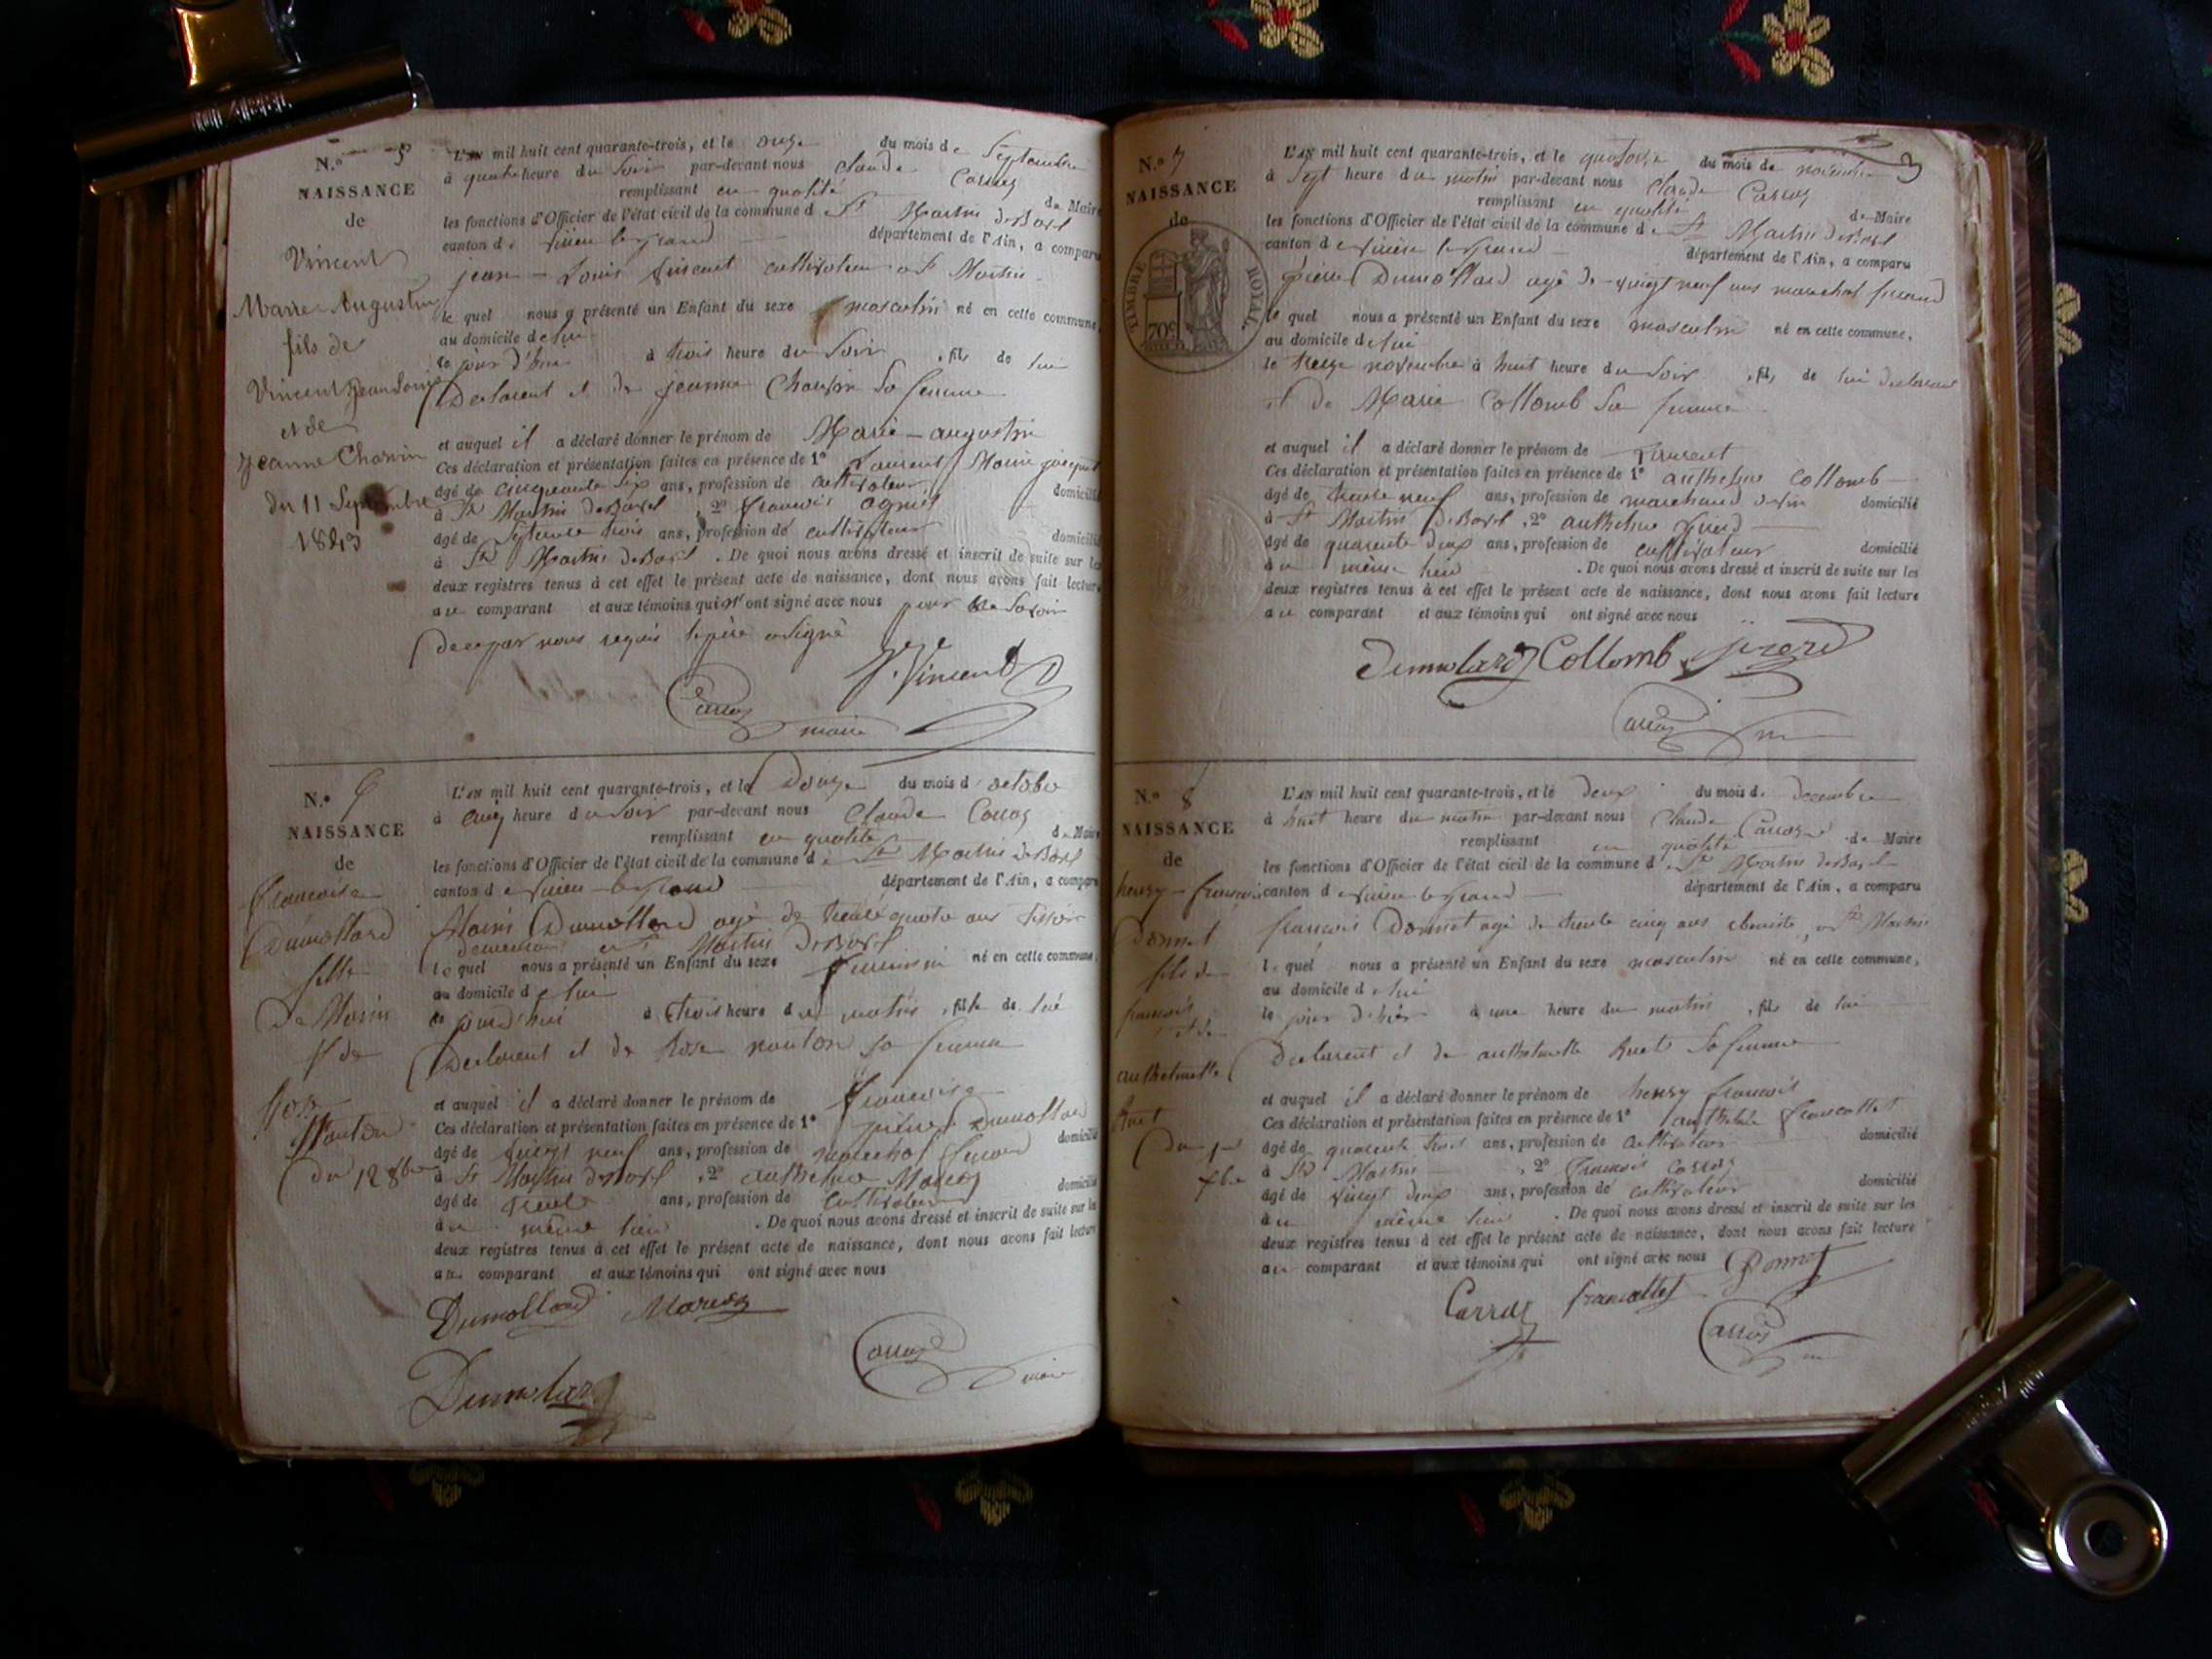 N.o 5
NAISSANCE
de
Vincent
Marie Augustin
fils de
Vincent Jean Louis
et de
Jeanne Charvin
du 11 Septembre
1843
L'AN mil huit cent quarante-trois, et le onze du mois de Septembre
à quatre heure du Soir par-devant nous Claude Carraz
remplissant en qualité de Maire
les fonctions d'Officier de l'état civil de la commune d St Martin de Bavel
canton de virieu le grand département de l'Ain, a comparu
jean-Louis Vincent cultivateur a St Martin
le quel nous a présenté un Enfant du sexe masculin né en cette commune,
au domicile de lui
le jour d'hui à trois heure du Soir, fils de lui
Declarent et de jeanne Charvin Sa femme
et auquel il a déclaré donner le prénom de Marie-augustin
Ces déclaration et présentation faites en présence de 1° Laurent Marin
âgé de cinquante six ans, profession de cultivateur domicilié
à St Martin de Bavel, 2° francois
âgé de Septante trois ans, profession de cultivateur domicilié
à St Martin de Bavel. De quoi nous avons dressé et inscrit de suite sur les
deux registres tenus à cet effet le présent acte de naissance, dont nous avons fait lecture
au comparant et aux témoins qui n'ont signé avec nous pour ne Savoir
de ce par nous requis le père a Signé
J. Vincent
Carraz
maire
N.o 6
NAISSANCE
de
francoise
Dumollard
fille
De Marin
et de
Rose
Nanton
du 12 8bre
L'AN mil huit cent quarante-trois, et le Douze du mois d' octobre
à cinq heure du Soir par-devant nous Claude Carraz
remplissant en qualité de Maire
les fonctions d'Officier de l'état civil de la commune de St Martin de Bavel
canton de virieu-le-grand département de l'Ain, a comparu
Marin Dumollard agé de trente quatre ans
demeurant a St Martin de Bavel
le quel nous a présenté un Enfant du sexe feminin né en cette commune,
au domicile de lui
le jourd'hui à trois heure du matin, fille de lui
Declarent et de Rose nanton sa femme
et auquel il a déclaré donner le prénom de francoise
Ces déclaration et présentation faites en présence de 1° pierre Dumollard
âgé de vingt neuf ans, profession de marechal ferrand domicilié
à St Martin de Bavel, 2° anthelme
âgé de trente ans, profession de cultivateur domicilié
au même lieu. De quoi nous avons dressé et inscrit de suite sur les
deux registres tenus à cet effet le présent acte de naissance, dont nous avons fait lecture
au comparant et aux témoins qui ont signé avec nous
Dumollard
Dumolard
Carraz
maire
3
N.o 7
NAISSANCE
de
TIMBRE ROYAL
70c
L'AN mil huit cent quarante-trois, et le quatorze du mois de novembre
à Sept heure du matin par-devant nous Claude Carraz
remplissant en qualité de Maire
les fonctions d'Officier de l'état civil de la commune de St Martin de Bavel
canton de virieu le grand département de l'Ain, a comparu
pierre Dumollard agé de vingt neuf ans marechal ferrand
le quel nous a présenté un Enfant du sexe masculin né en cette commune,
au domicile de lui
le treize novembre à huit heure du Soir, fils de lui declarent
et de Marie Collomb Sa femme
et auquel il a déclaré donner le prénom de Laurent
Ces déclaration et présentation faites en présence de 1° anthelme Collomb
âgé de trente neuf ans, profession de marchand domicilié
à St Martin de Bavel, 2° anthelme
âgé de quarante deux ans, profession de cultivateur domicilié
au même lieu. De quoi nous avons dressé et inscrit de suite sur les
deux registres tenus à cet effet le présent acte de naissance, dont nous avons fait lecture
au comparant et aux témoins qui ont signé avec nous
Dumolard Collomb
Carraz
N.o 8
NAISSANCE
de
henry-francois
Donnet
fils de
francois
et de
anthelmette
Huet
du 1er
xbre
L'AN mil huit cent quarante-trois, et le deux du mois de Decembre
à huit heure du matin par-devant nous Claude Carraz
remplissant en qualité de Maire
les fonctions d'Officier de l'état civil de la commune d St Martin de Bavel
canton de virieu le grand département de l'Ain, a comparu
francois Donnet agé de trente cinq ans ebeniste, a St Martin
le quel nous a présenté un Enfant du sexe masculin né en cette commune,
au domicile de lui
le jour d'hier à une heure du matin, fils de lui
Declarent et de anthelmette Huet Sa femme
et auquel il a déclaré donner le prénom de henry francois
Ces déclaration et présentation faites en présence de 1° anthelme francallet
âgé de quarante trois ans, profession de cultivateur domicilié
à St Martin, 2° francois Carraz
âgé de vingt deux ans, profession de cultivateur domicilié
au même lieu. De quoi nous avons dressé et inscrit de suite sur les
deux registres tenus à cet effet le présent acte de naissance, dont nous avons fait lecture
au comparant et aux témoins qui ont signé avec nous Donnet
Carraz francallet
Carraz